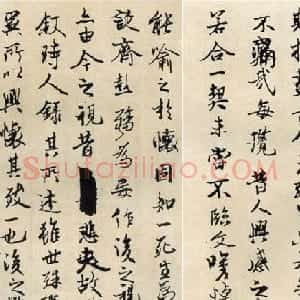 不痛哉每攬昔人興感之
若合一契未嘗不臨文嗟
能喻之於懷固知一死生為
誕齊彭殤為妄作後之視
亦由今之視昔悲夫故
敘時人錄其所述雖世殊
異所以興懷其致一也後之
Shufaziliao